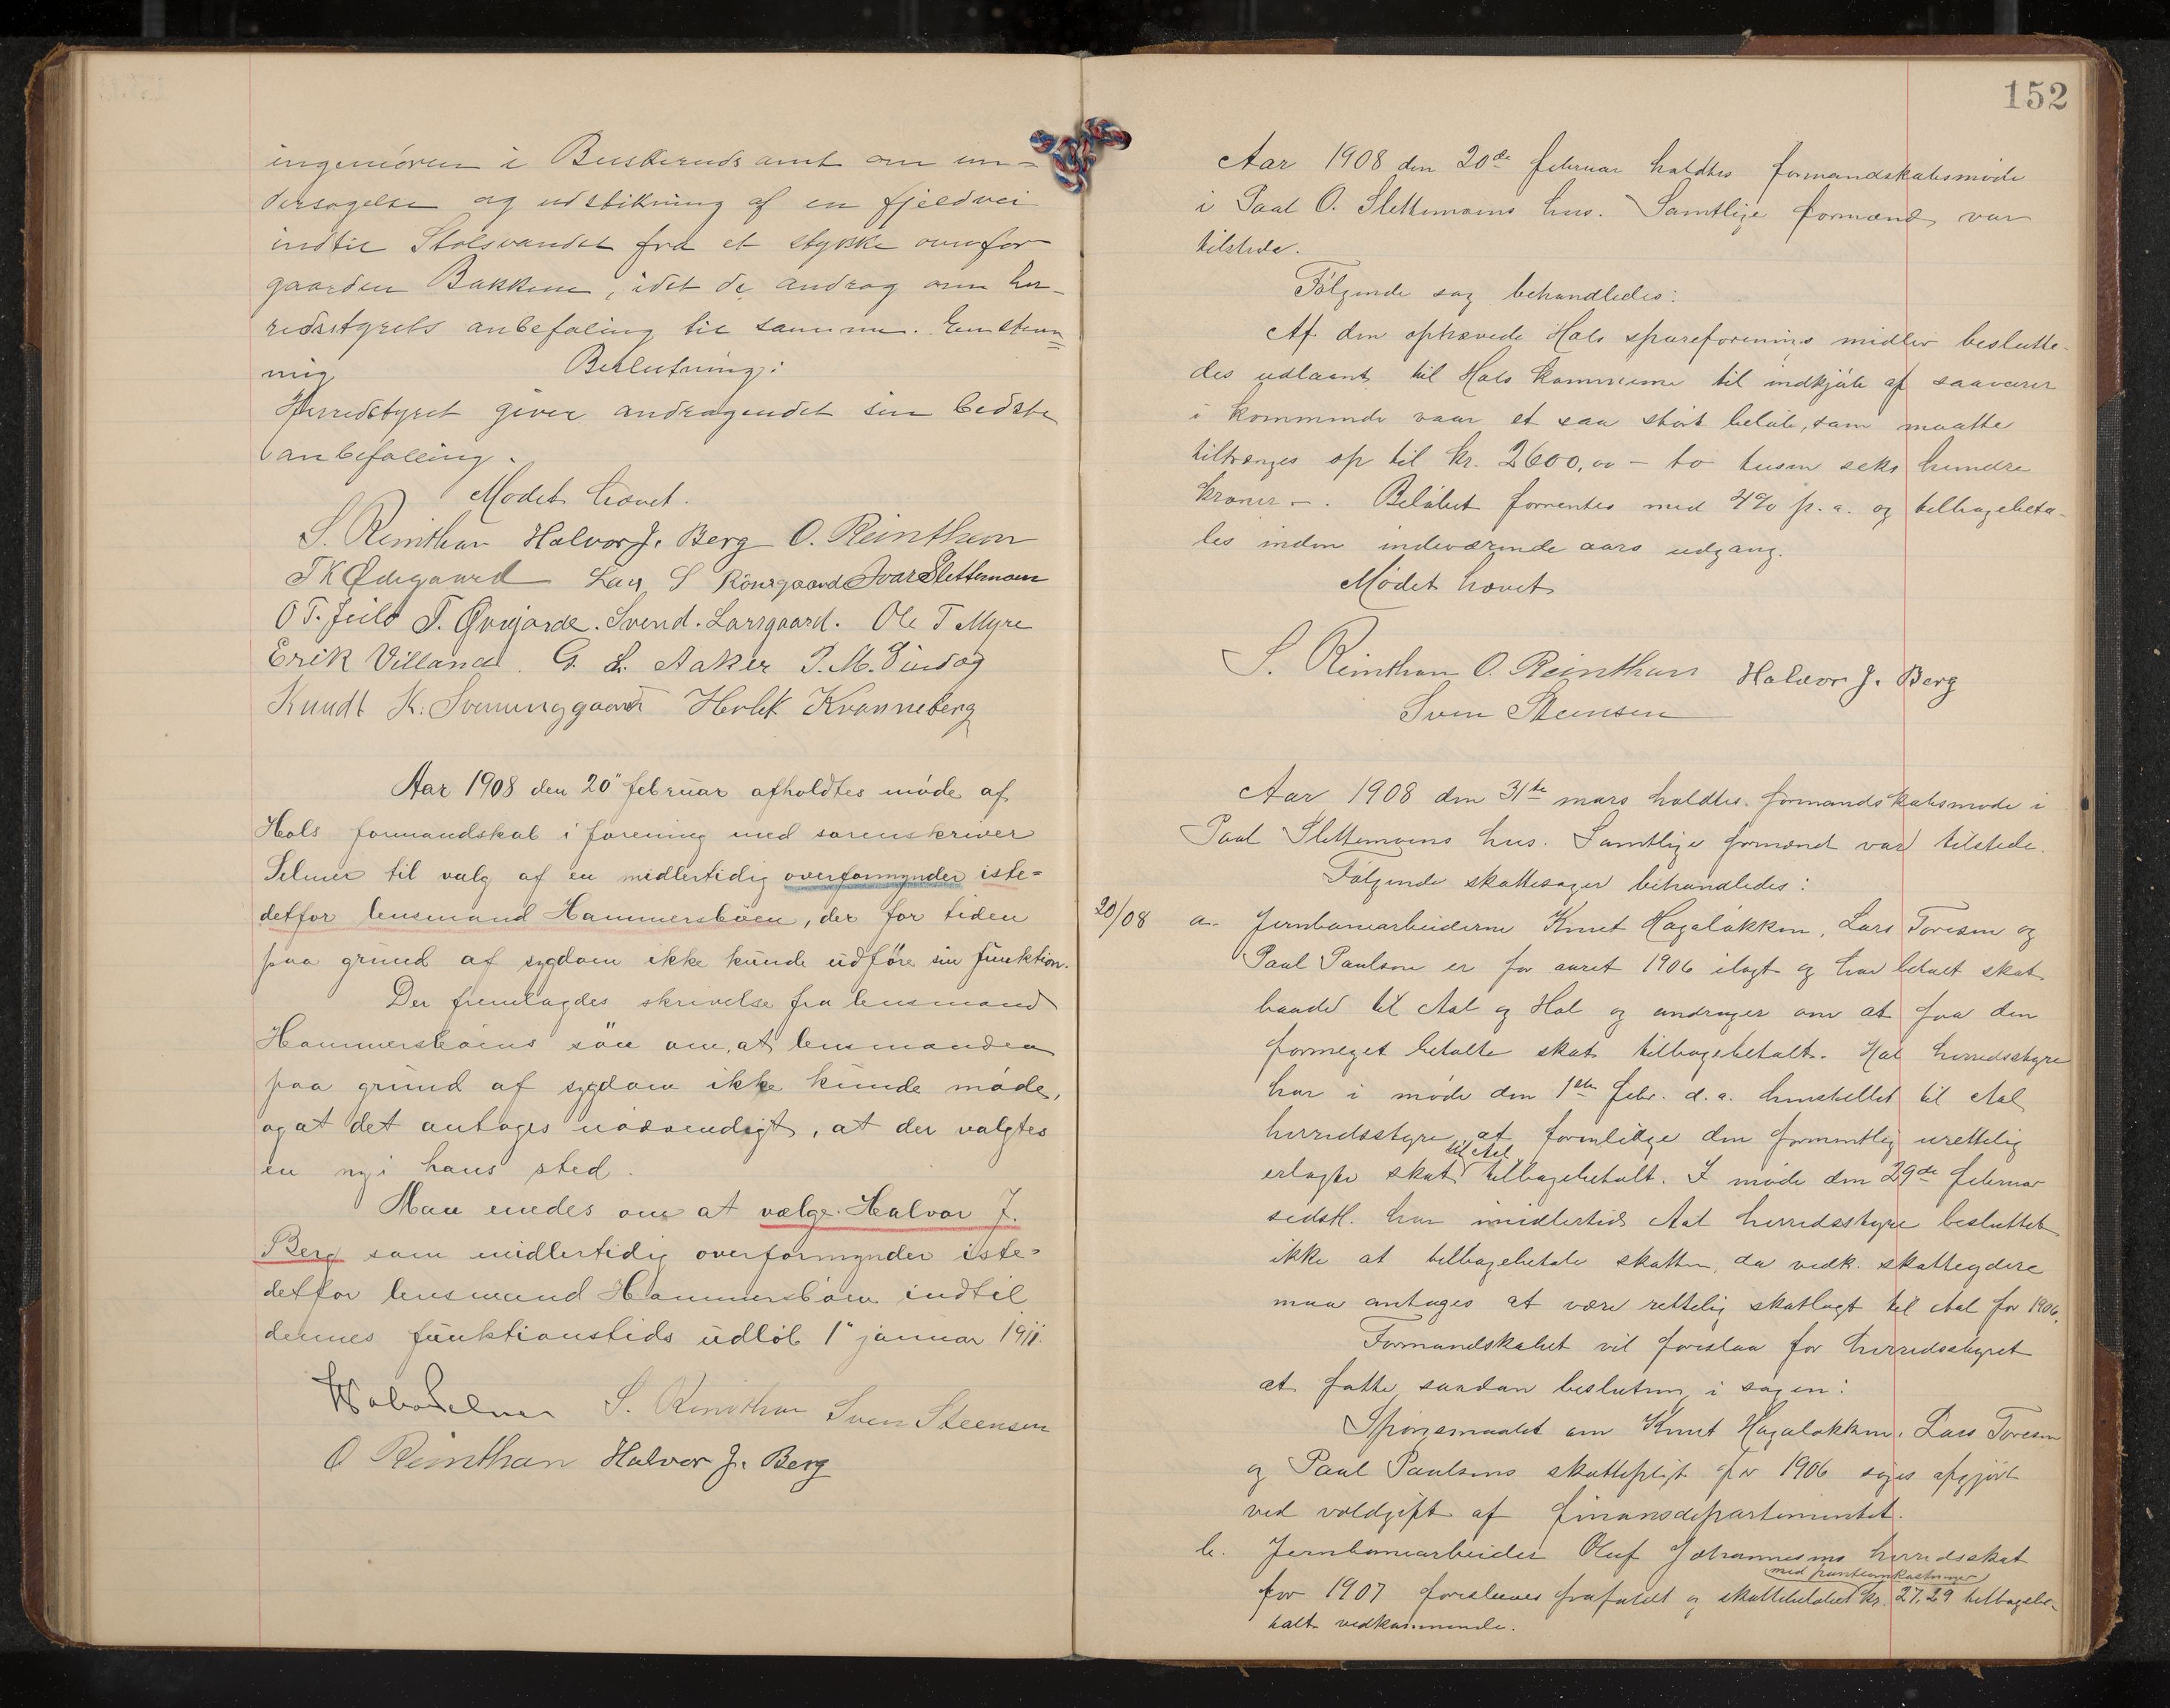 ingeniören i Buskeruds amt om un=
dersøgelse og udstikning af en fjeldvei
indtil Stolsvandet fra et stykke ovenfor
gaarden Bakkene, idet de androg om her-
redsstyrets anbefaling til samme. Enstem=
mig
Beslutning:
Herredstyret giver andragendet sin bedste
anbefaling.
Mødet hævet.
S. Reinthon Halvor J. Berg O. Reinthon
T K Ødegaard Lars S Rönsgaard Ivar Slettemoen
O T. Jeilo T. Øvrejorde. Svend. Larsgaard. Ole T Myre
Erik Villand. G. L. Aaker T. M. Tindog
Knudt K. Sveninggaard Herlek Kvanneberg
Aar 1908 den 20" februar afholdtes møde af
Hols formandskab i forening med sorenskriver
Selmer til valg af en midlertidig overformynder iste=
detfor lensmand Hammersböen, der for tiden
paa grund af sygdom ikke kunde udföre sin funktion.
Der fremlagdes skrivelse fra lensmand
Hammersböens sön om, at lensmanden
paa grund af sygdom ikke kunde møde,
og at det antoges nødvendigt, at der valgtes
en ny i hans sted.
Man enedes om at vælge Halvor J.
Berg som midlertidig overformynder iste=
detfor lensmand Hammersböen indtil
dennes funktionstids udløb 1" januar 1911.
Selmer S. Reinthon Sven Steensen
O Reinthon Halvor J. Berg
152
Aar 1908 den 20de februar holdtes formandskabsmøde
i Paal O. Slettemoens hus. Samtlige formænd var
tilstede.
Følgende sag behandledes:
Af den ophævede Hols spareforenings midler beslutte-
des udlaant til Hols kommune til indkjøb af saavarer
i kommende vaar et saa stort beløb, som maatte
tiltrænges op til kr. 2600,00 – to tusen seks hundre
kroner –. Beløbet forrentes med 4% p. a. og tilbagebeta-
les inden indeværende aars udgang.
Mødet hævet
S. Reinthon O. Reinthon Halvor J. Berg
Sven Steensen
Aar 1908 den 31te mars holdtes formandskabsmøde i
Paal Slettemoens hus. Samtlige formænd var tilstede.
Følgende skattesager behandledes:
20/08 a. Jernbanearbeiderne Knut Hagaløkken, Lars Toresen og
Paul Paulsen er for aaret 1906 ilagt og har betalt skat
baade til Aal og Hol og andrager om at faa den
formeget betalte skat tilbagebetalt. Hol herredsstyre
har i møde den 1ste febr. d. a. henstillet til Aal
herredsstyre at foranledige den formentlig urettelig
til Aal
erlagte skat tilbagebetalt. I møde den 29de februar
sidstl. har imidlertid Aal herredsstyre besluttet
ikke at tilbagebetale skatten, da vedk. skatteydere
maa antages at være rettelig skatlagt til Aal for 1906.
Formandskabet vil foreslaa for herredsstyret
at fatte saadan beslutning i sagen:
Spørgsmaalet om Knut Hagaløkken, Lars Toresen
og Paul Paulsens skattepligt for 1906 søges afgjort
ved voldgift af finansdepartementet.
b. Jernbanearbeider Oluf Johannesens herredsskat
med panteomkostninger
for 1907 foreslaaes frafaldt og skattebeløbet kr. 27,29 tilbagebe-
talt vedkommende.